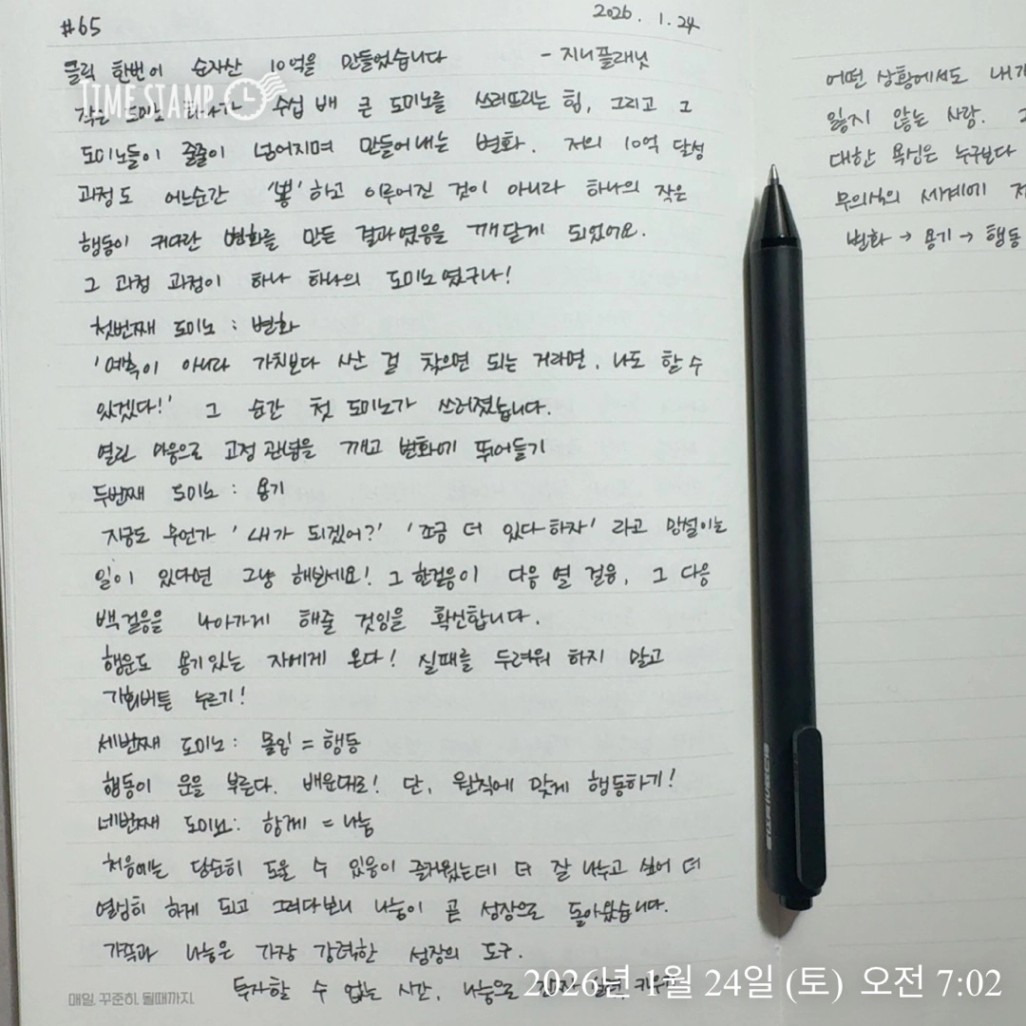 #65
2026. 1. 24
클릭 한번이 순자산 10억을 만들었습니다 - 지니플래닛
TIME STAMP
작은 도미노 하나가 수십 배 큰 도미노를 쓰러뜨리는 힘, 그리고 그
도미노들이 줄줄이 넘어지며 만들어내는 변화. 저의 10억 달성
과정도 어느순간 '뿅' 하고 이루어진 것이 아니라 하나의 작은
행동이 커다란 변화를 만든 결과였음을 깨닫게 되었어요.
그 과정 과정이 하나 하나의 도미노였구나!
첫번째 도미노 : 변화
'예측이 아니라 가치보다 싸산 걸 찾으면 되는 거라면, 나도 할 수
있겠다!' 그 순간 첫 도미노가 쓰러졌습니다.
열린 마음으로 고정관념을 깨고 변화에 뛰어들기
두번째 도미노 : 용기
지금도 무언가 '내가 되겠어?' '조금 더 있다 하자' 라고 망설이는
일이 있다면 그냥 해보세요! 그 한걸음이 다음 열 걸음, 그 다음
백걸음을 나아가게 해줄 것임을 확신합니다.
행운도 용기있는 자에게 온다! 실패를 두려워 하지 말고
기회버튼 누르기!
세번째 도미노 : 몰입 = 행동
행동이 운을 부른다. 배운대로! 단, 원칙에 맞게 행동하기!
네번째 도미노 : 함께 = 나눔
처음에는 단순히 도울 수 있음이 즐거웠는데 더 잘 나누고 싶어 더
열심히 하게 되고 그러다보니 나눔이 곧 성장으로 돌아왔습니다.
가족과 나눔은 가장 강력한 성장의 도구.
투자할 수 없는 시간, 나눔으로
매일, 꾸준히, 될때까지.
어떤 상황에서도 내가
잃지 않는 사랑.
대한 욕심은 누구보다
무의식의 세계에
변화 → 용기 → 행동
2026년 1월 24일 (토) 오전 7:02